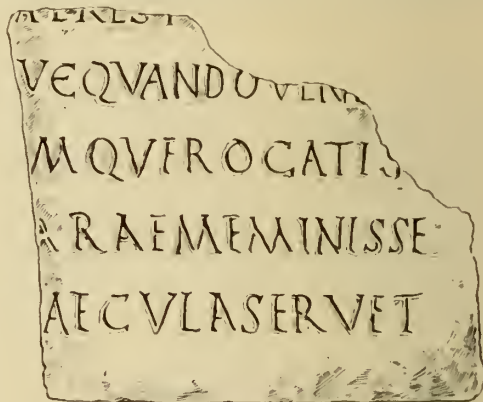 VEQVANDOVENI
MQVEROGATIS
RAEMEMINISSE
AECVLASERVET